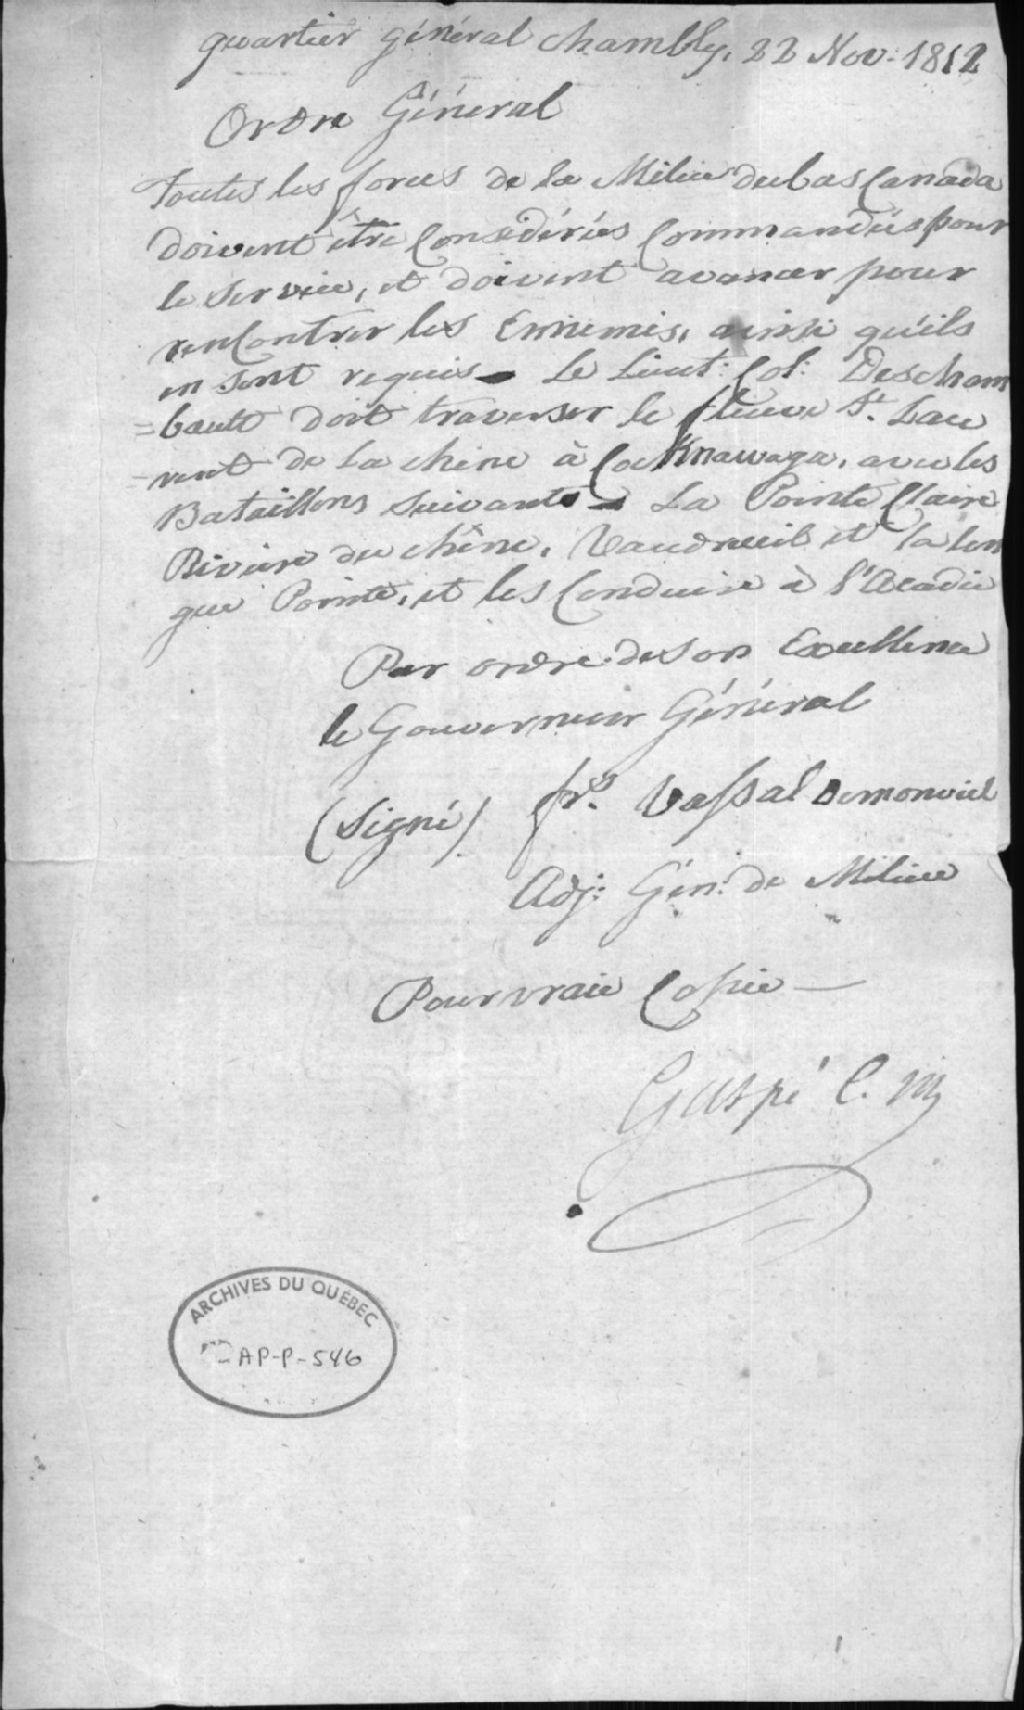 quartier général chambly, 22 Nov: 1812
Ordre Général
Toutes les forces de la Milice du bas Canada
doivent être Considérées Commandées pour
le Service, et doivent avancer pour
renContrer les Ennemis, ainsi qu'ils
en sont requis - Le Lieut: Col: Descham
=bault doit traverser le fleuve St. Lau
=rent de la chine à CocKnawaga, avec les
Bataillons suivants - La Pointe Claire
Riviere du chêne, Vaudreuil et la lon
gue Pointe, et les Conduire à l'Acadie
Par ordre de son Excellence
le Gouverneur Général
(Signé) frs. Vassal Demonviel
Adj: Gén: de Milice
Pour vraie Copie —
Gaspé C. M
ARCHIVES DU QUÉBEC
AP-P-546